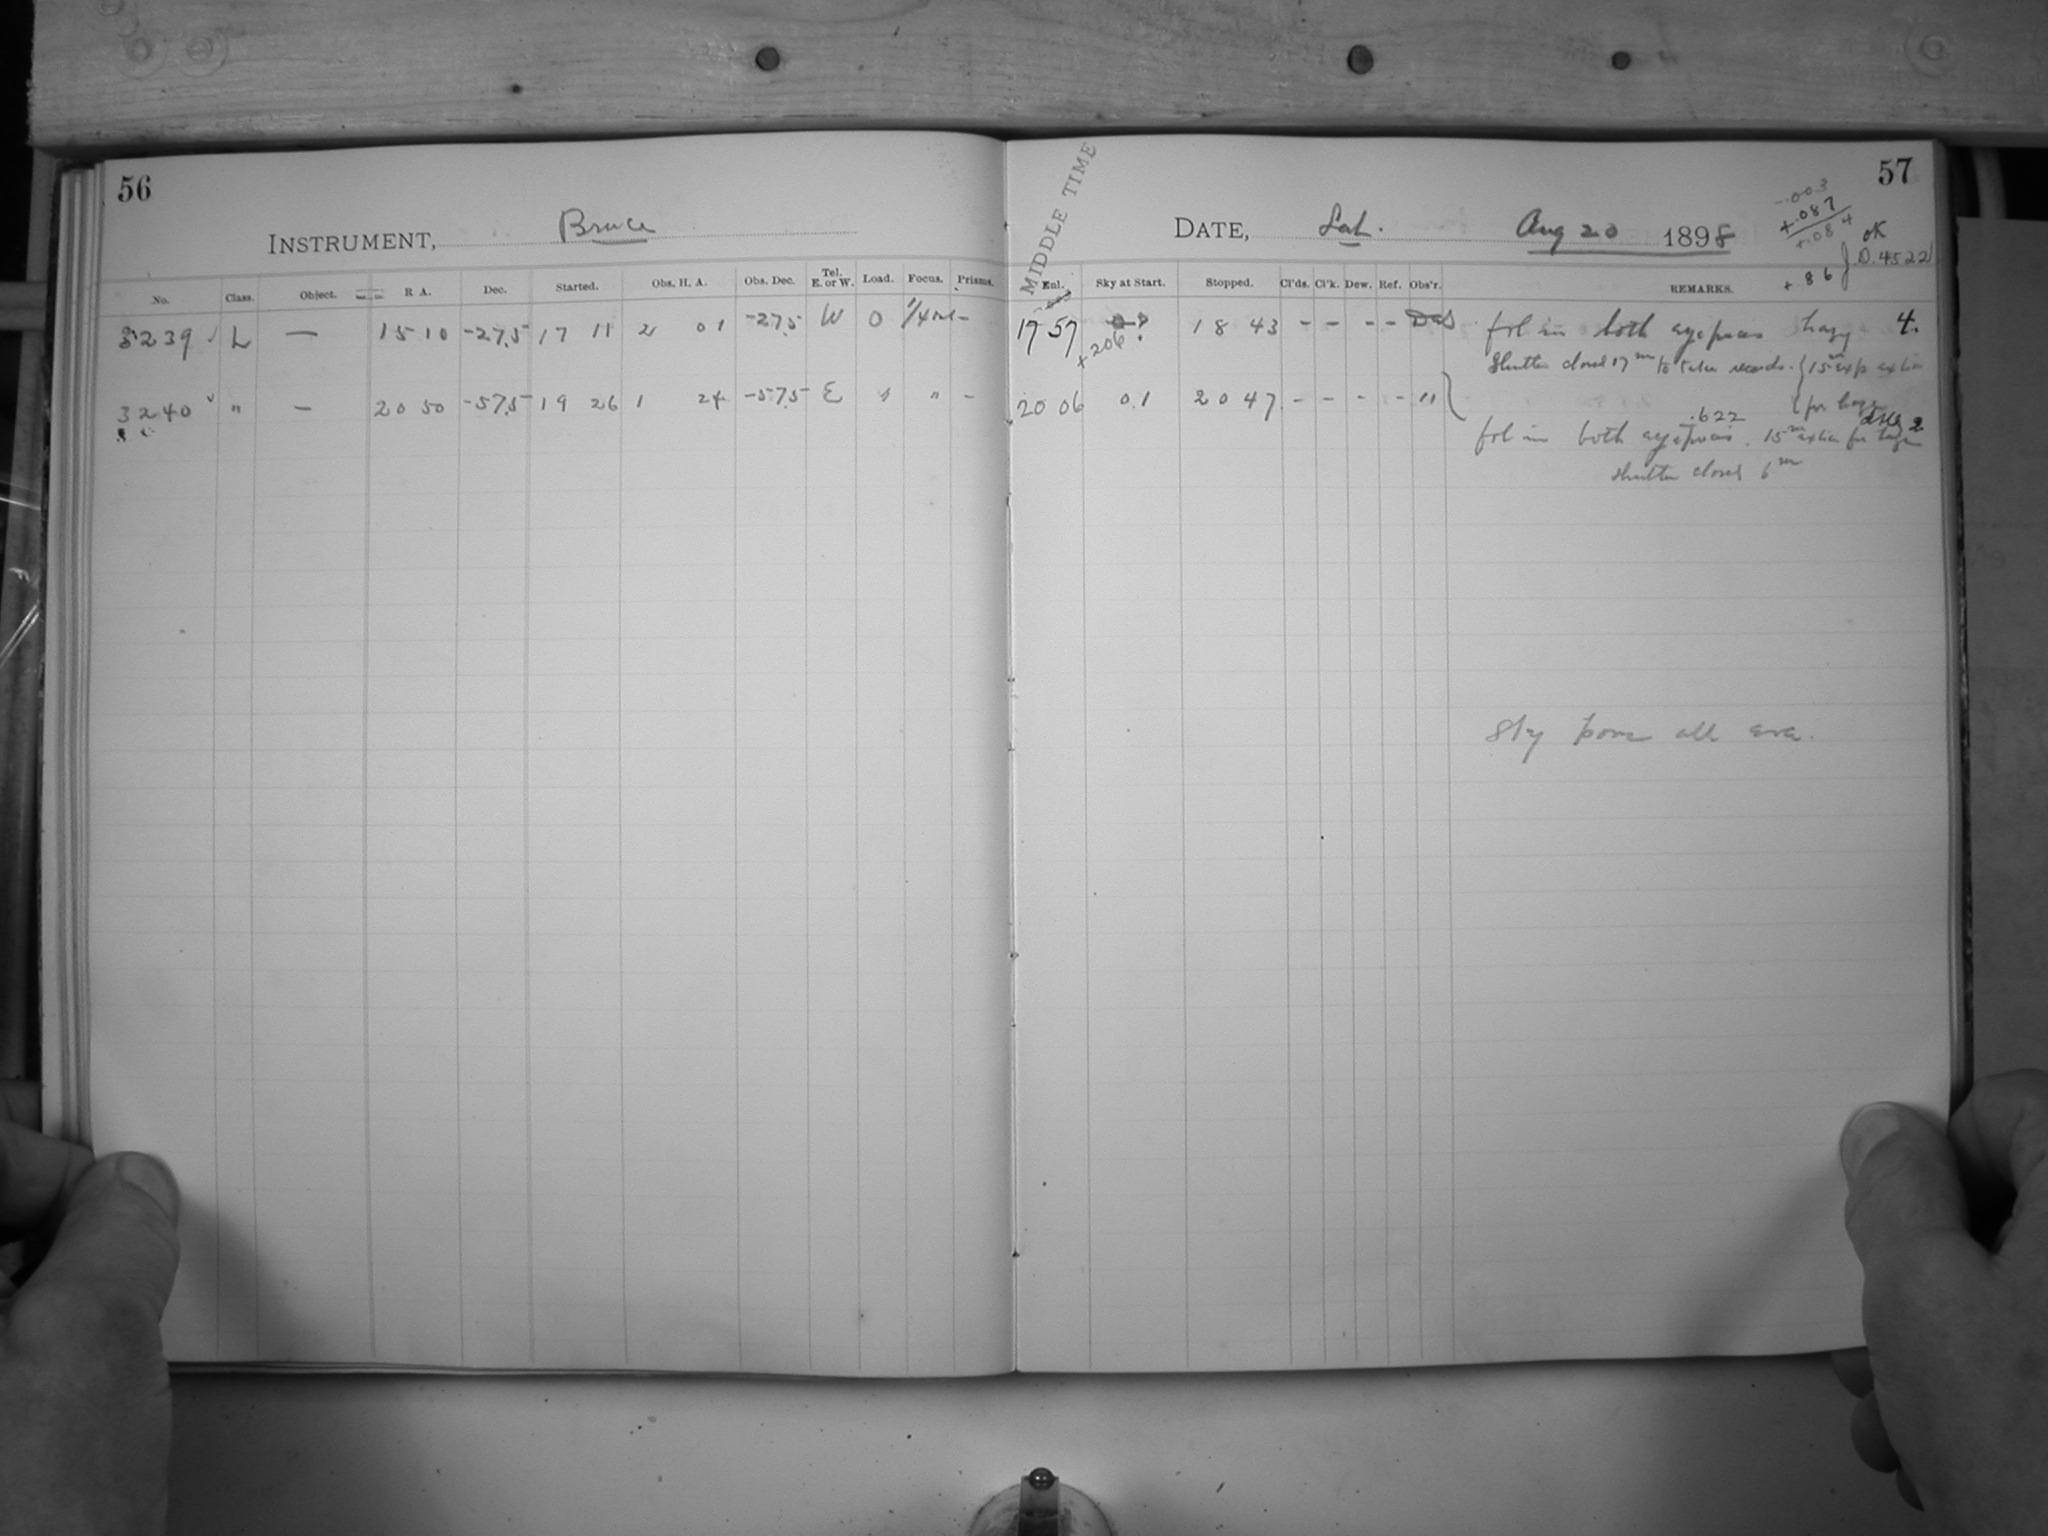 56
INSTRUMENT, Bruce
No. Class. Object. R A. Dec. Started. Obs. H. A. Obs. Dec. Tel. E. or W. Load. Focus. Prisms.
3239 L — 15 10 -27.5 17 11 2 01 -27.5 W 0 –
3240 " — 20 50 -57.5 19 26 1 24 -57.5 E " " –
57
MIDDLE TIME
DATE, Sat. Aug 20 1898
-.003
+.087
+.084
+ 86
OK
J.D. 4522
Enl. Sky at Start. Stopped. Cl'ds. Cl'k. Dew. Ref. Obs'r. REMARKS.
17 57 18 43 – – – – fol in both eyepieces hazy 4.
+206
Shutter closed 17m to take records. 15m exp extra
for haze
20 06 0.1 20 47 – – – – "
.622
fol in both eyepieces. 15m extra for haze
2
Shutter closed 6m
Sky poor all eve.